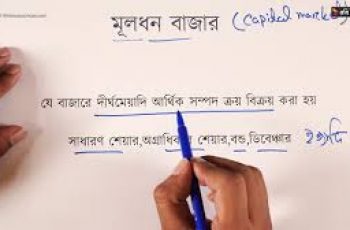 মূলধন বাজার (Capital market)
যে বাজারে দীর্ঘমেয়াদি আর্থিক সম্পদ ক্রয় বিক্রয় করা হয়
সাধারণ শেয়ার,অগ্রাধিকার শেয়ার,বন্ড,ডিবেঞ্চার ইত্যাদি